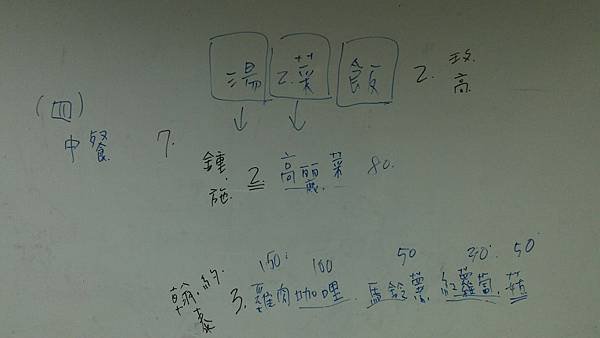 湯 2.菜 飯 2. 玫.高
(四)
中餐 7.
鍾.施. 2. 高麗菜 80.
150. 100 50 20. 50
3. 雞肉咖哩. 馬鈴薯. 紅蘿蔔. 菇